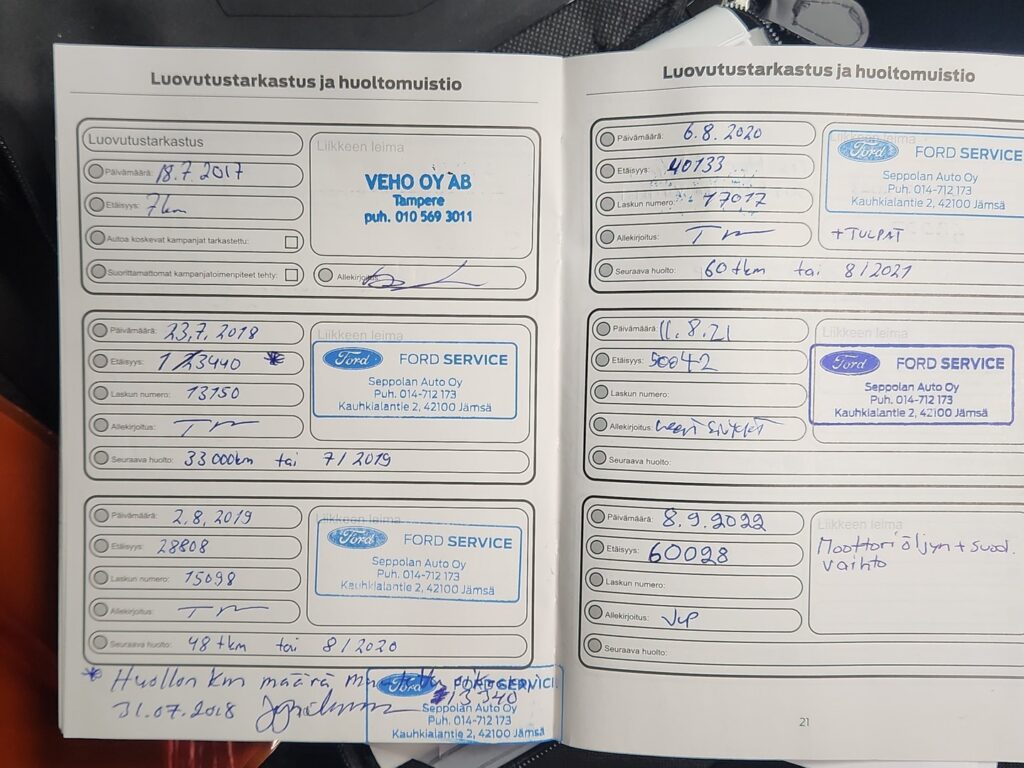 Luovutustarkastus ja huoltomuistio
Luovutustarkastus
Päivämäärä: 18.7.2017
Etäisyys: 7km
Autoa koskevat kampanjat tarkastettu:
Suorittamattomat kampanjatoimenpiteet tehty:
Liikkeen leima
VEHO OY AB
Tampere
puh. 010 569 3011
Allekirjoitus:
Päivämäärä: 23.7.2018
Etäisyys: 13440 *
Laskun numero: 13150
Allekirjoitus:
Seuraava huolto: 33 000km tai 7/2019
Liikkeen leima
Ford FORD SERVICE
Seppolan Auto Oy
Puh. 014-712 173
Kauhkialantie 2, 42100 Jämsä
Päivämäärä: 2.8.2019
Etäisyys: 28808
Laskun numero: 15098
Allekirjoitus:
Seuraava huolto: 48 tkm tai 8/2020
Liikkeen leima
Ford FORD SERVICE
Seppolan Auto Oy
Puh. 014-712 173
Kauhkialantie 2, 42100 Jämsä
* Huollon km määrä
13340
31.07.2018
Ford FORD SERVICE
Seppolan Auto Oy
Puh. 014-712 173
Kauhkialantie 2, 42100 Jämsä
Luovutustarkastus ja huoltomuistio
Päivämäärä: 6.8.2020
Etäisyys: 40133
Laskun numero: 17017
Allekirjoitus:
Seuraava huolto: 60 tkm tai 8/2021
Liikkeen leima
Ford FORD SERVICE
Seppolan Auto Oy
Puh. 014-712 173
Kauhkialantie 2, 42100 Jämsä
+TULPAT
Päivämäärä: 11.8.21
Etäisyys: 50042
Laskun numero:
Allekirjoitus:
Seuraava huolto:
Liikkeen leima
Ford FORD SERVICE
Seppolan Auto Oy
Puh. 014-712 173
Kauhkialantie 2, 42100 Jämsä
Päivämäärä: 8.9.2022
Etäisyys: 60098
Laskun numero:
Allekirjoitus:
Seuraava huolto:
Liikkeen leima
Moottoriöljyn + suod.
vaihto
21